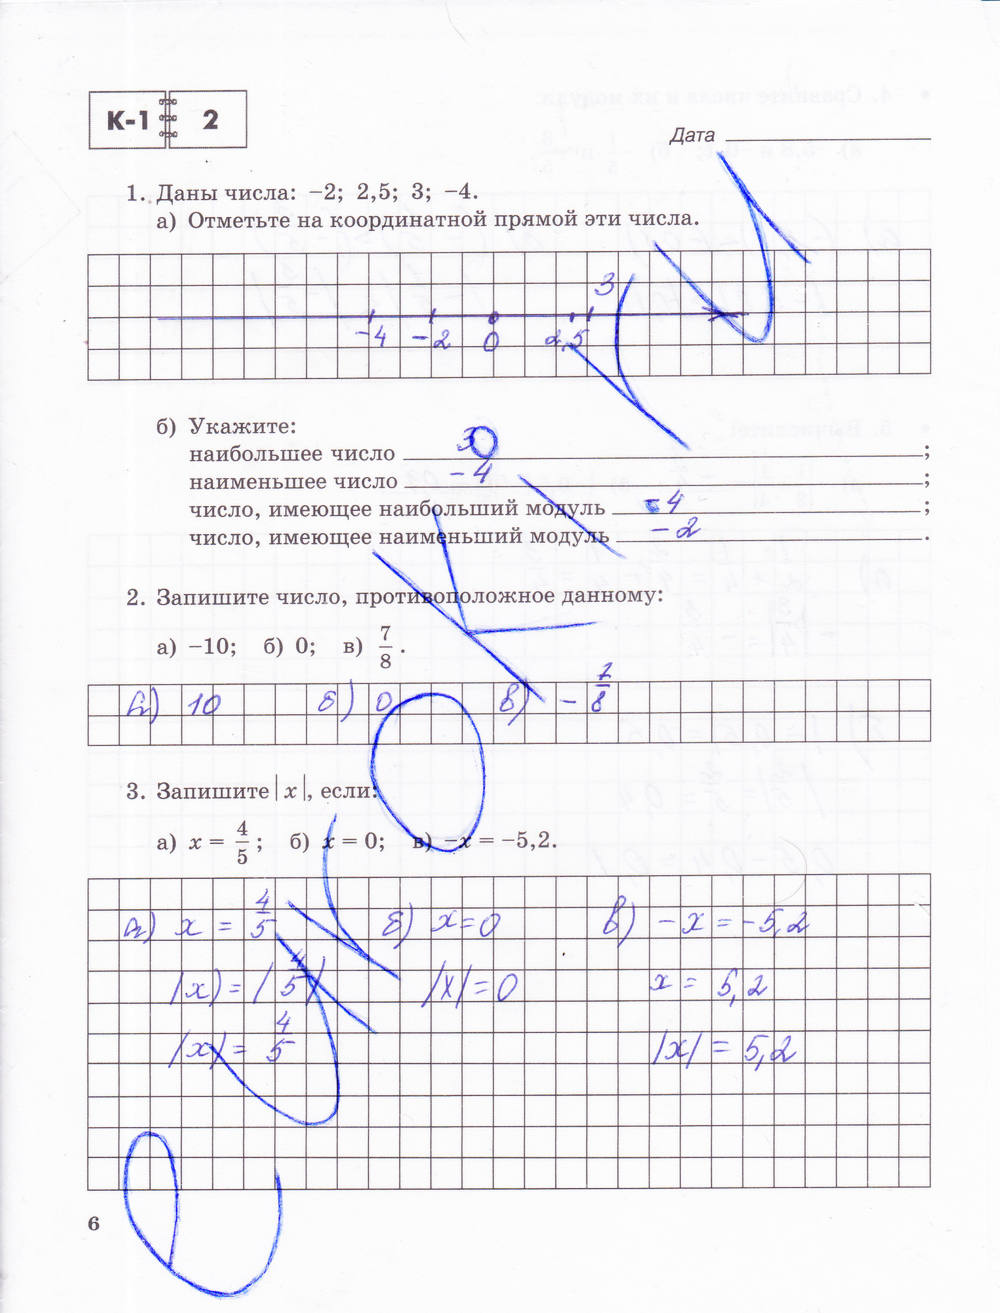 К-1 2
Дата
1. Даны числа: −2; 2,5; 3; −4.
а) Отметьте на координатной прямой эти числа.
3
−4 −2 0 2,5
б) Укажите:
наибольшее число 3 ;
наименьшее число −4 ;
число, имеющее наибольший модуль −4 ;
число, имеющее наименьший модуль −2 .
2. Запишите число, противоположное данному:
а) −10; б) 0; в) 7/8 .
а) 10 б) 0 в) − 7/8
3. Запишите |x|, если:
а) x = 4/5 ; б) x = 0; в) −x = −5,2.
а) x = 4/5 б) x=0 в) −x = −5,2
|x| = |4/5| |x| = 0 x = 5,2
|x| = 4/5 |x| = 5,2
6